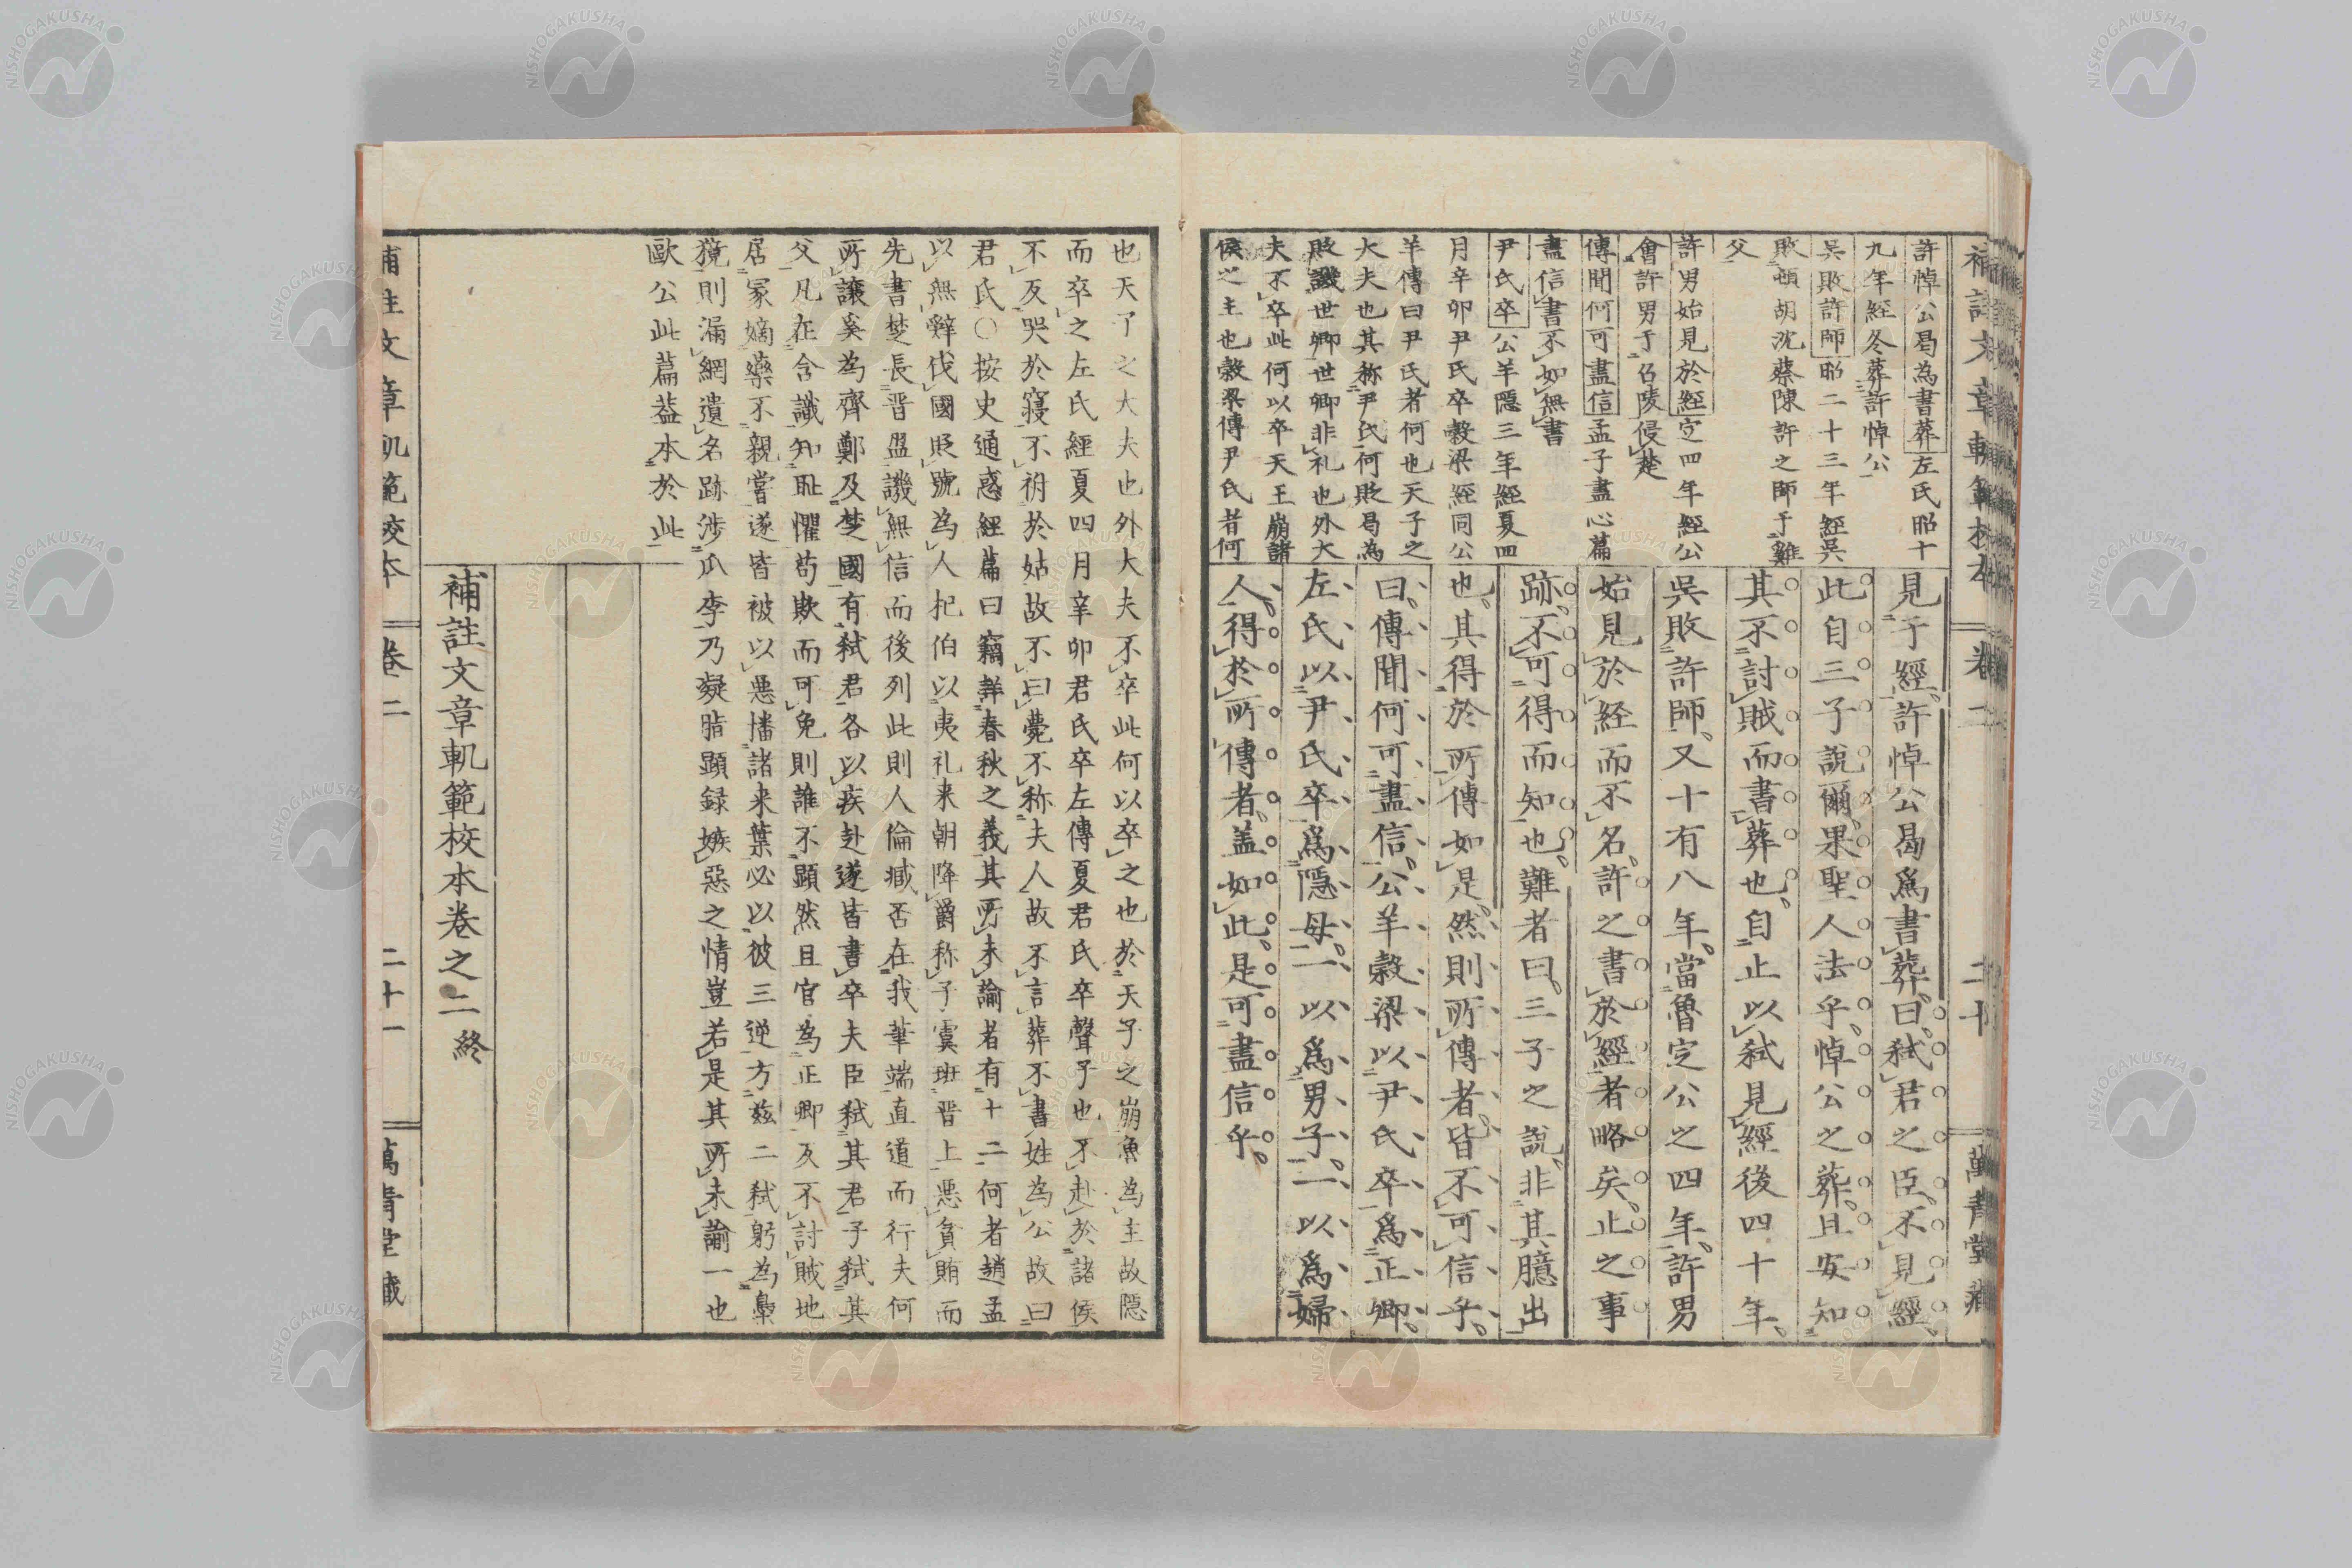 補註文章軌範校本 卷二 二十 萬青堂藏
許悼公曷為書葬左氏昭十
九年經冬葬許悼公
吳敗許師昭二十三年經吳
敗頓胡沈蔡陳許之師于雞
父
許男始見於經定四年經公
會許男于召陵侵楚
傳聞何可盡信孟子盡心篇
盡信書不如無書
尹氏卒公羊隱三年經夏四
月辛卯尹氏卒穀梁經同公
羊傳曰尹氏者何也天子之
大夫也其称尹氏何貶曷為
貶譏世卿世卿非礼也外大
夫不卒此何以卒天王崩諸
侯之主也穀梁傳尹氏者何
見于經許悼公曷爲書葬曰弑君之臣不見經
此自三子說爾果聖人法乎悼公之葬且安知
其不討賊而書葬也自止以弑見經後四十年
吳敗許師又十有八年當魯定公之四年許男
始見於經而不名許之書於經者略矣止之事
跡不可得而知也難者曰三子之說非其臆出
也其得於所傳如是然則所傳者皆不可信乎
曰傳聞何可盡信公羊穀梁以尹氏卒爲正卿
左氏以尹氏卒爲隱母一以爲男子一以爲婦
人得於所傳者盖如此是可盡信乎
也天子之大夫也外大夫不卒此何以卒之也於天子之崩魯為主故隱
而卒之左氏經夏四月辛卯君氏卒左傳夏君氏卒聲子也不赴於諸侯
不反哭於寢不祔於姑故不曰薨不称夫人故不言葬不書姓為公故曰
君氏○按史通惑經篇曰竊詳春秋之義其所未論者有十二何者趙孟
以無辭伐國貶號為人杞伯以夷礼来朝降爵称子虞班晋上惡貪賄而
先書楚長晋盟譏無信而後列此則人倫臧否在我筆端直道而行夫何
所讓奚為齊鄭及楚國有弑君各以疾赴遂皆書卒夫臣弑其君子弑其
父凡在含識知耻懼苟欺而可免則誰不顯然且官為正卿反不討賊地
居冢嫡藥不親嘗遂皆被以惡播諸来葉必以彼三逆方兹二弑躬為梟
獍則漏網遺名跡涉瓜李乃凝脂顕録嫉惡之情豈若是其所未論一也
歐公此篇葢本於此
補註文章軌範校本卷之二終
補註文章軌範校本 卷二 二十一 萬青堂藏
NISHOGAKUSHA